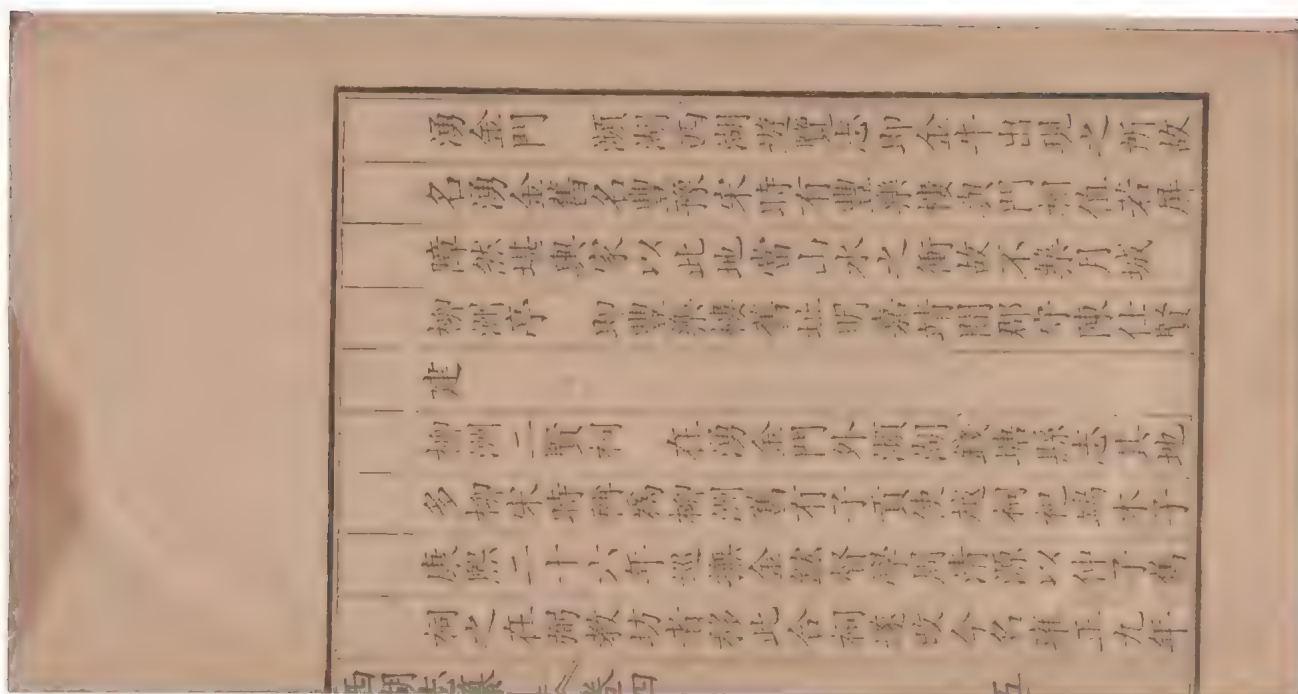 湧金門　瀕湖西湖遊覽志即金牛出現之所故
名湧金舊名豐豫宋時有豐樂樓與門相值若屏
障然堪輿家以此地當山水之衝故不築月城
柳洲亭　即豐樂樓舊址明嘉靖間郡守陳仕賢
建
柳洲二賢祠　在湧金門外瀕湖錢塘縣志其地
多柳宋時稱為柳洲舊有子貢使越祠祀端木子
康熙二十六年巡撫金鋐督學周清源以仲子舊
祠之在弼教坊者移此合祠遂改今名雍正九年
西湖志纂　卷四　五